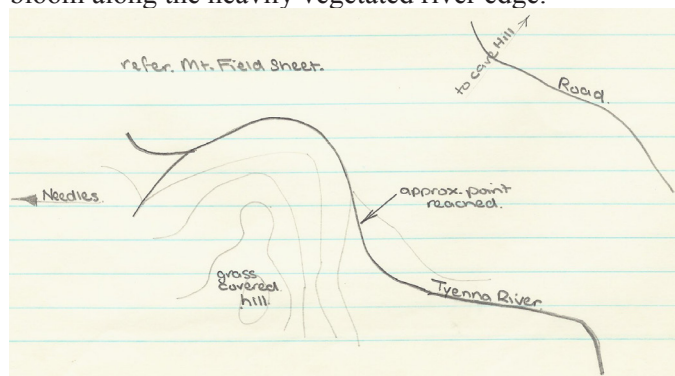 bloom along the heavily vegetated river edge.
refer. Mt. Field Sheet.
to cave Hill
Road.
Needles.
approx. point
reached.
grass
covered
hill.
Tyenna River.